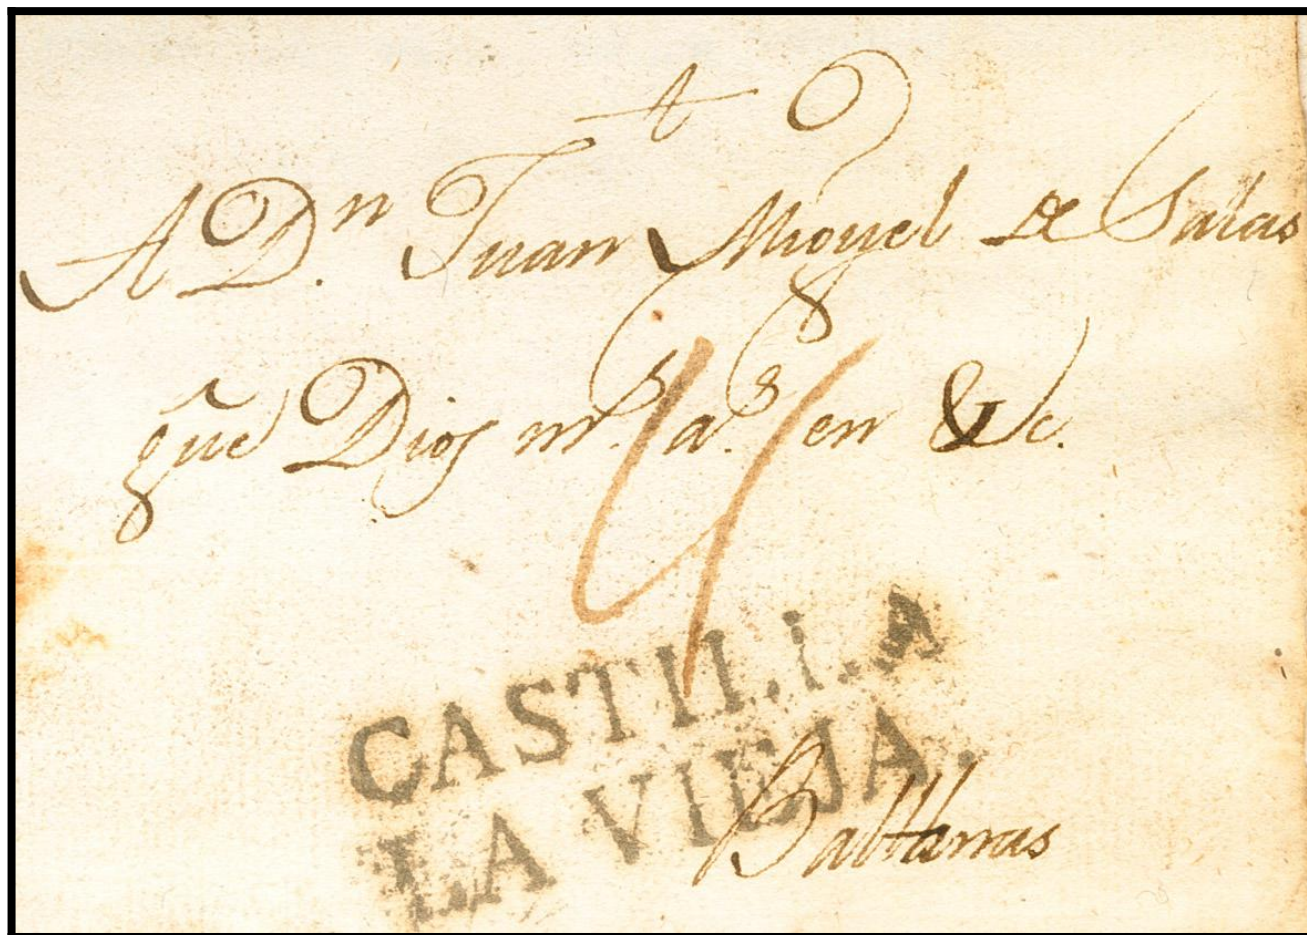 A Dn. Juan Miguel de Salas
gũe Dios ms. as. en &c.
4
CASTILLA
LA VIEJA.
Baltanas